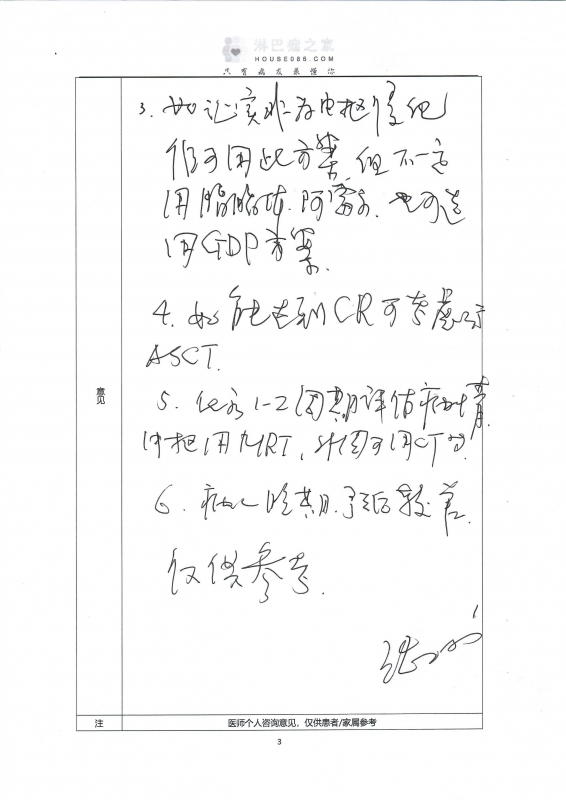 淋巴瘤之家
HOUSE086.COM
只有病友最懂你
意见
3. 如证实非为中枢侵犯
仍可用此方案, 但不一定
用脂质体. 阿霉素. 也可选
用GDP方案.
4. 如能达到CR可考虑行
ASCT.
5. 化疗1-2周期评估病情
中枢用MRI, 外周可用CT
6. 病人晚期. 预后较差.
仅供参考.
注
医师个人咨询意见，仅供患者/家属参考
3